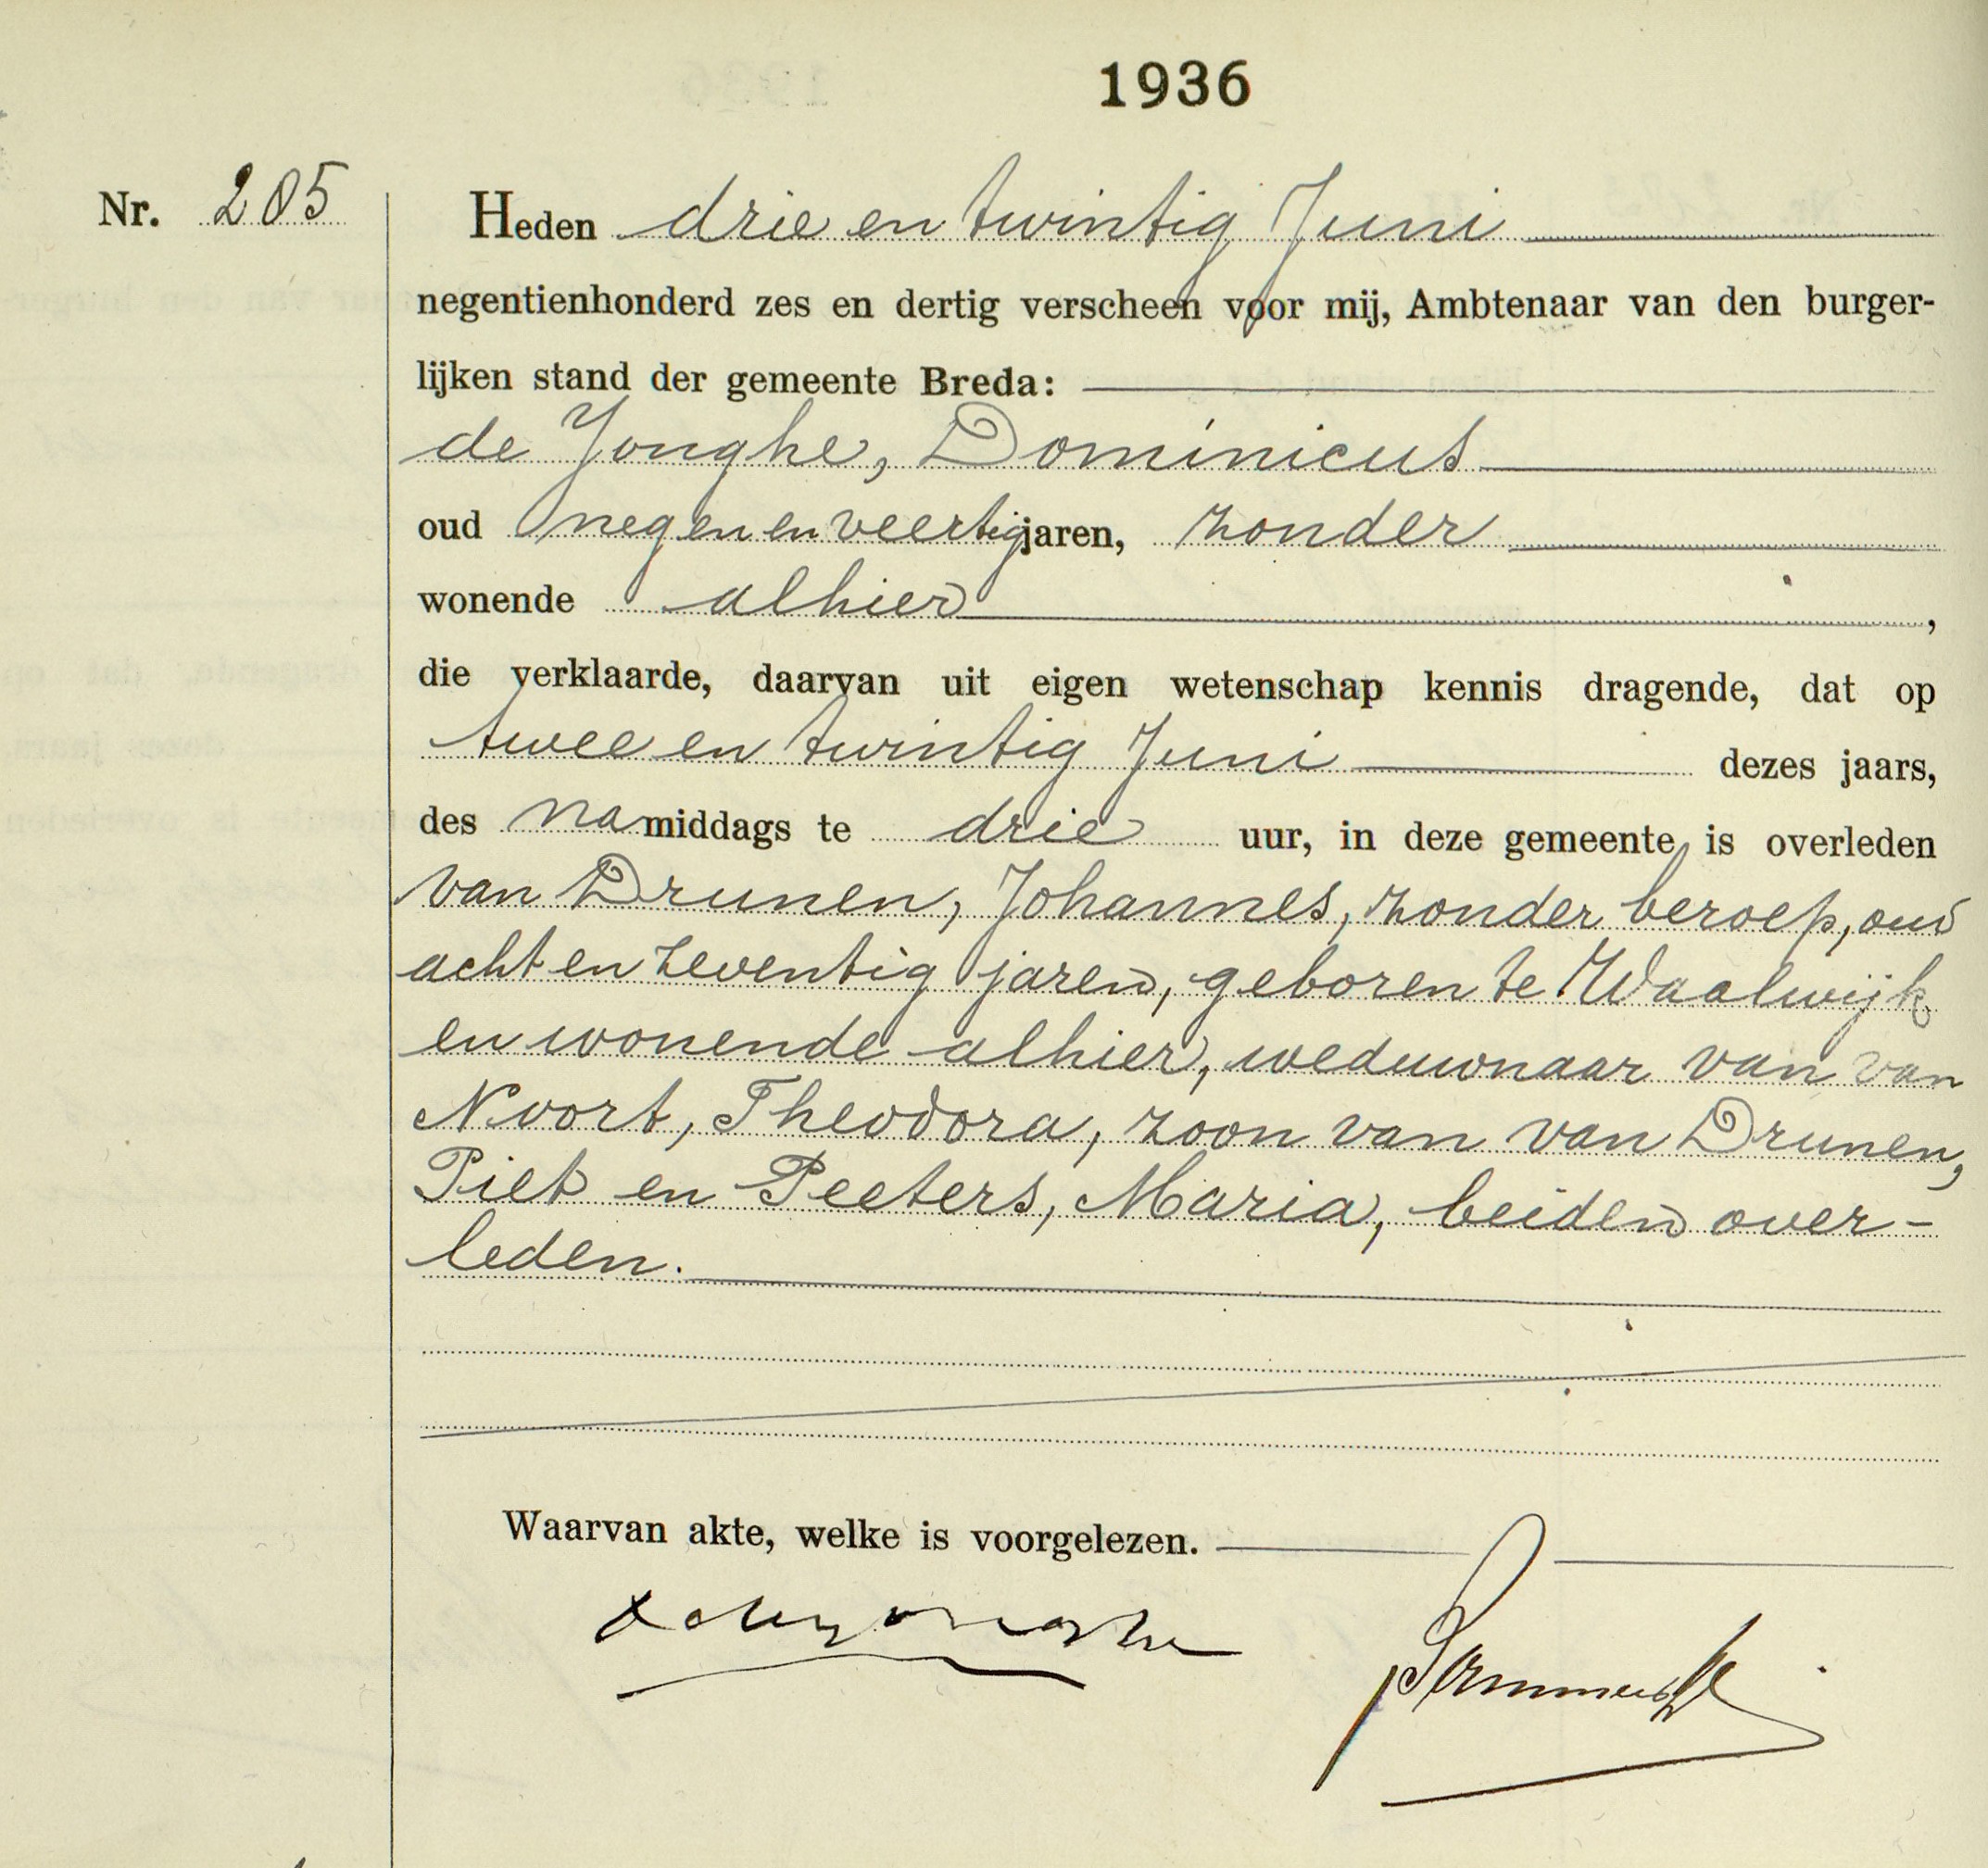 1936
Nr. 205
Heden drie en twintig Juni
negentienhonderd zes en dertig verscheen voor mij, Ambtenaar van den burger-
lijken stand der gemeente Breda:
de Jonghe, Dominicus
oud negen en veertig jaren, zonder
wonende alhier,
die verklaarde, daarvan uit eigen wetenschap kennis dragende, dat op
twee en twintig Juni dezes jaars,
des namiddags te drie uur, in deze gemeente is overleden
van Drunen, Johannes, zonder beroep, oud
acht en zeventig jaren, geboren te Waalwijk
en wonende alhier, weduwnaar van van
Noort, Theodora, zoon van van Drunen,
Piet en Peeters, Maria, beiden over-
leden.
Waarvan akte, welke is voorgelezen.